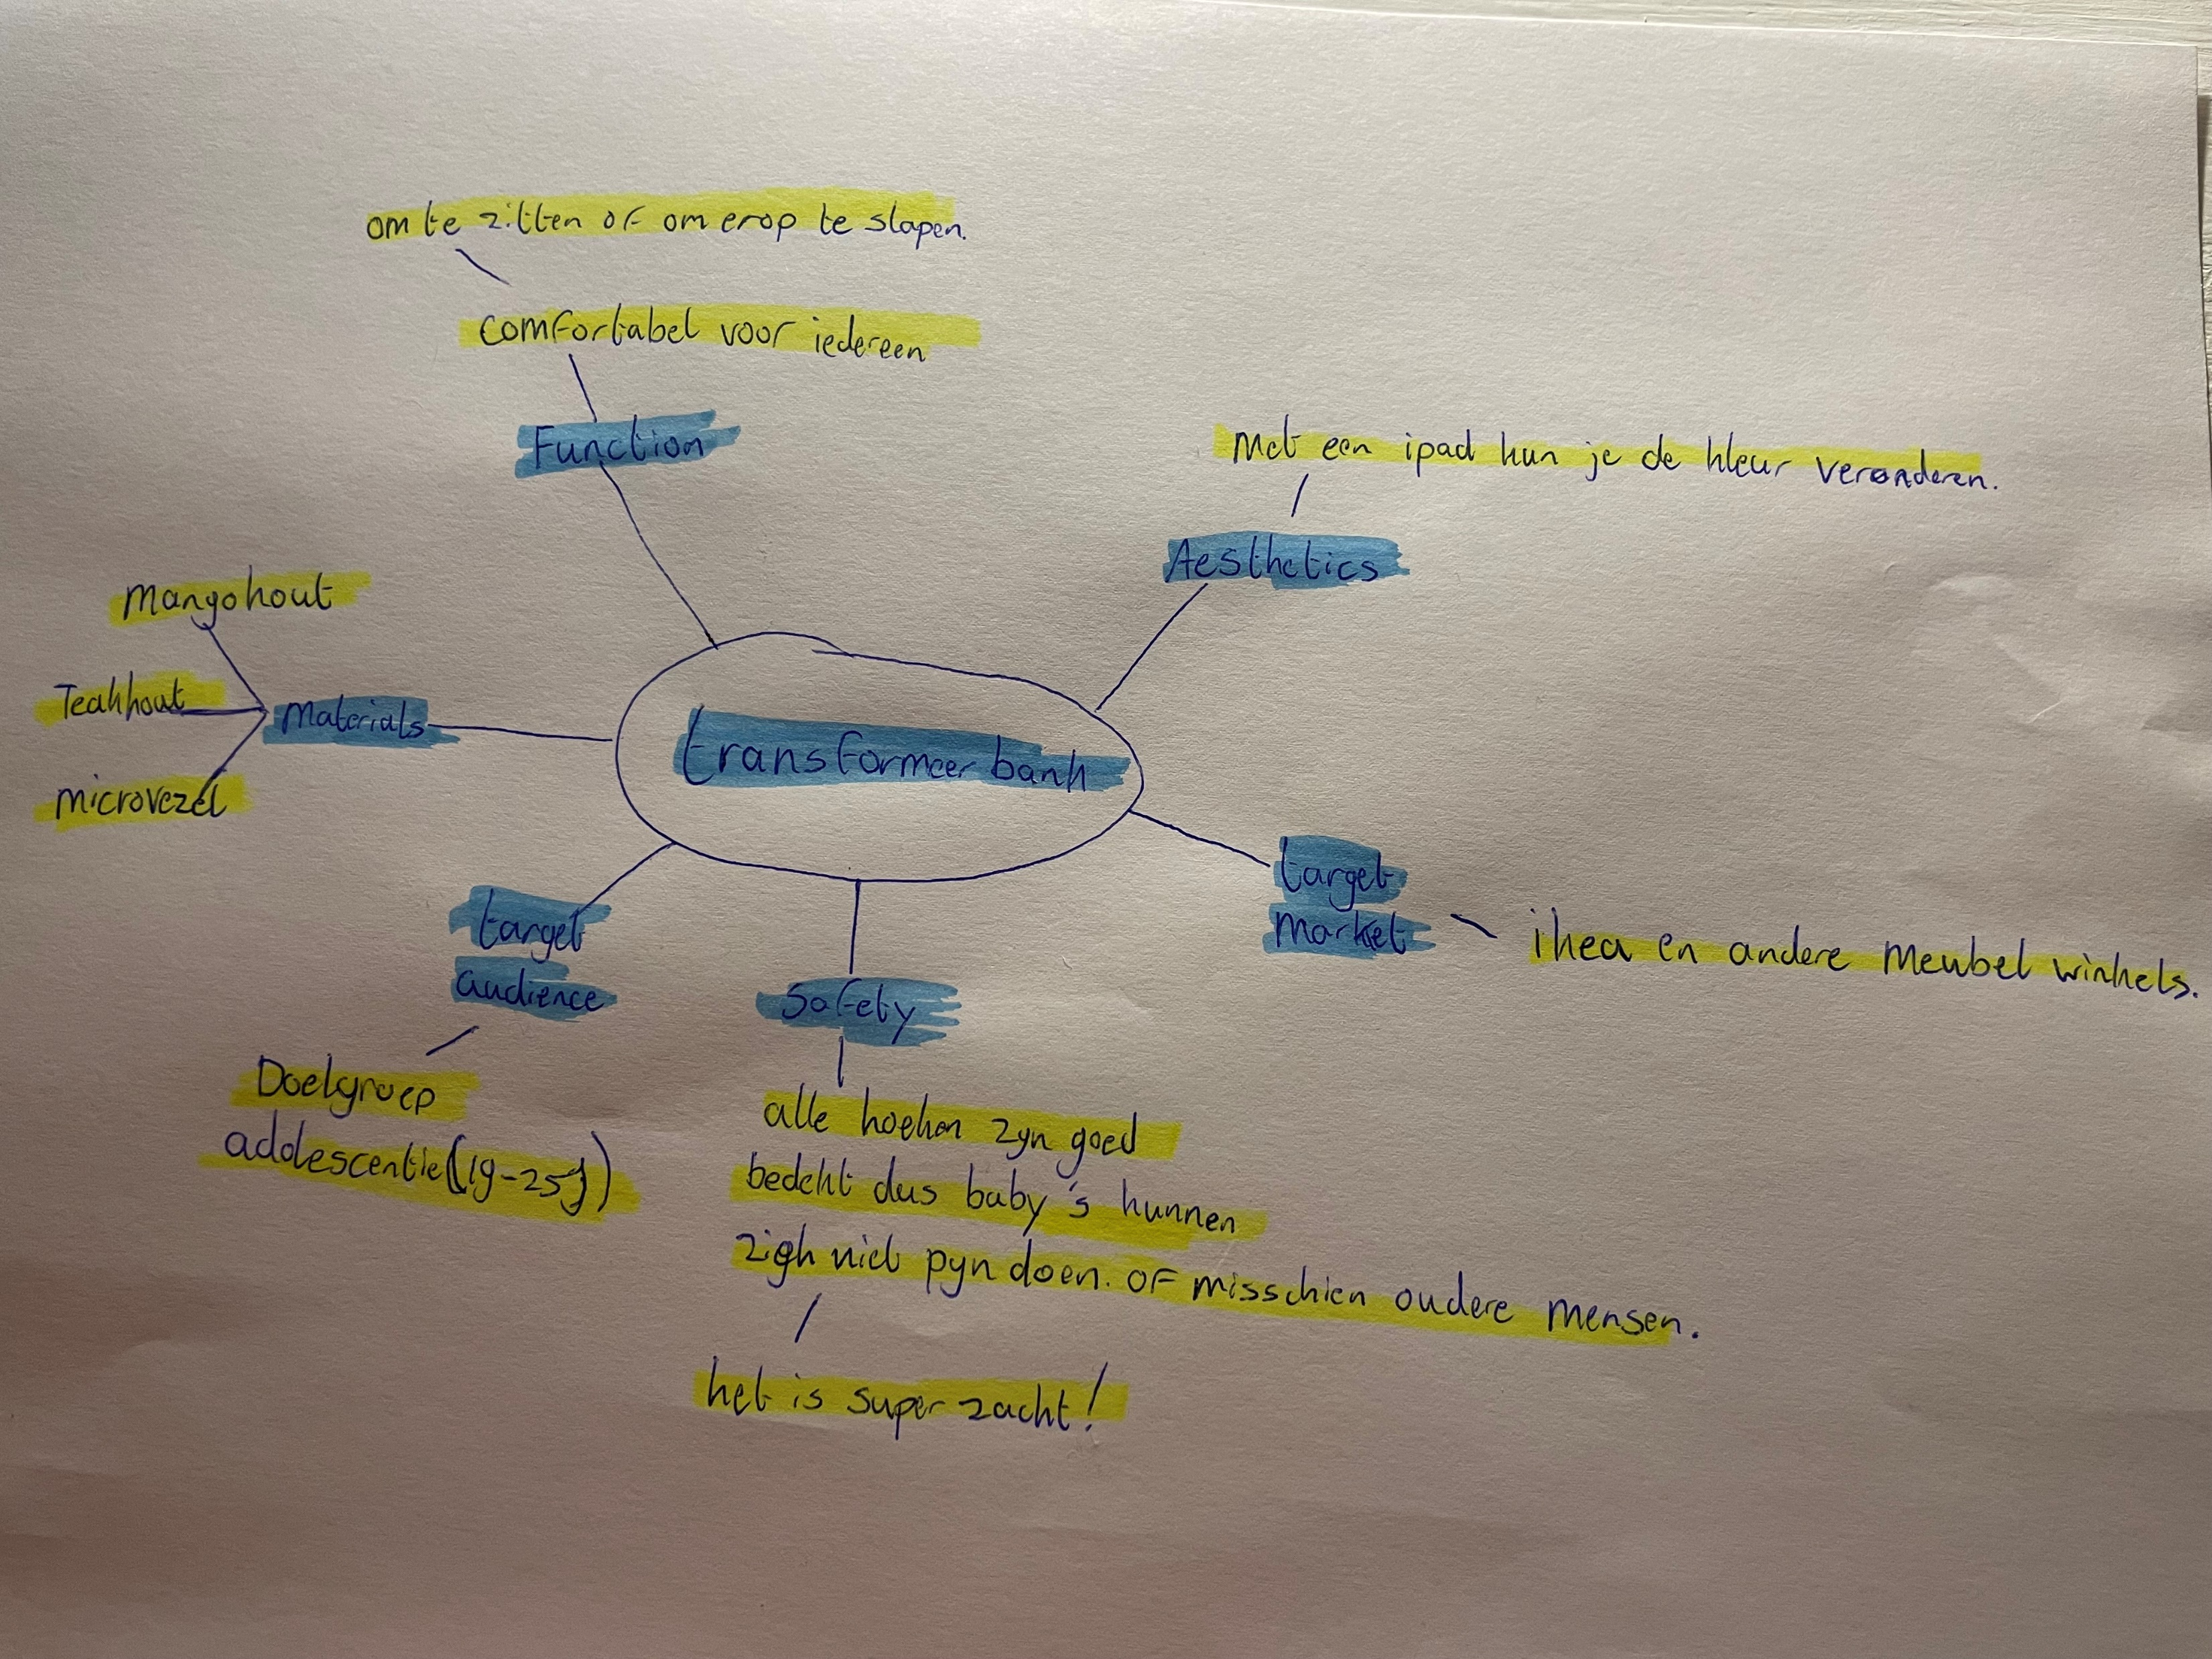 om te zitten of om erop te slapen.
comfortabel voor iedereen
Function
Met een ipad kun je de kleur veranderen.
Aesthetics
Mangohout
Teakhout
Materials
microvezel
transformeer bank
target
Market
ikea en andere Meubel winkels.
target
audience
Doelgroep
adolescentie (19-25j)
Safety
alle hoeken zyn goed
bedekt dus baby's kunnen
zigh niet pyn doen. of misschien oudere mensen.
het is super zacht!